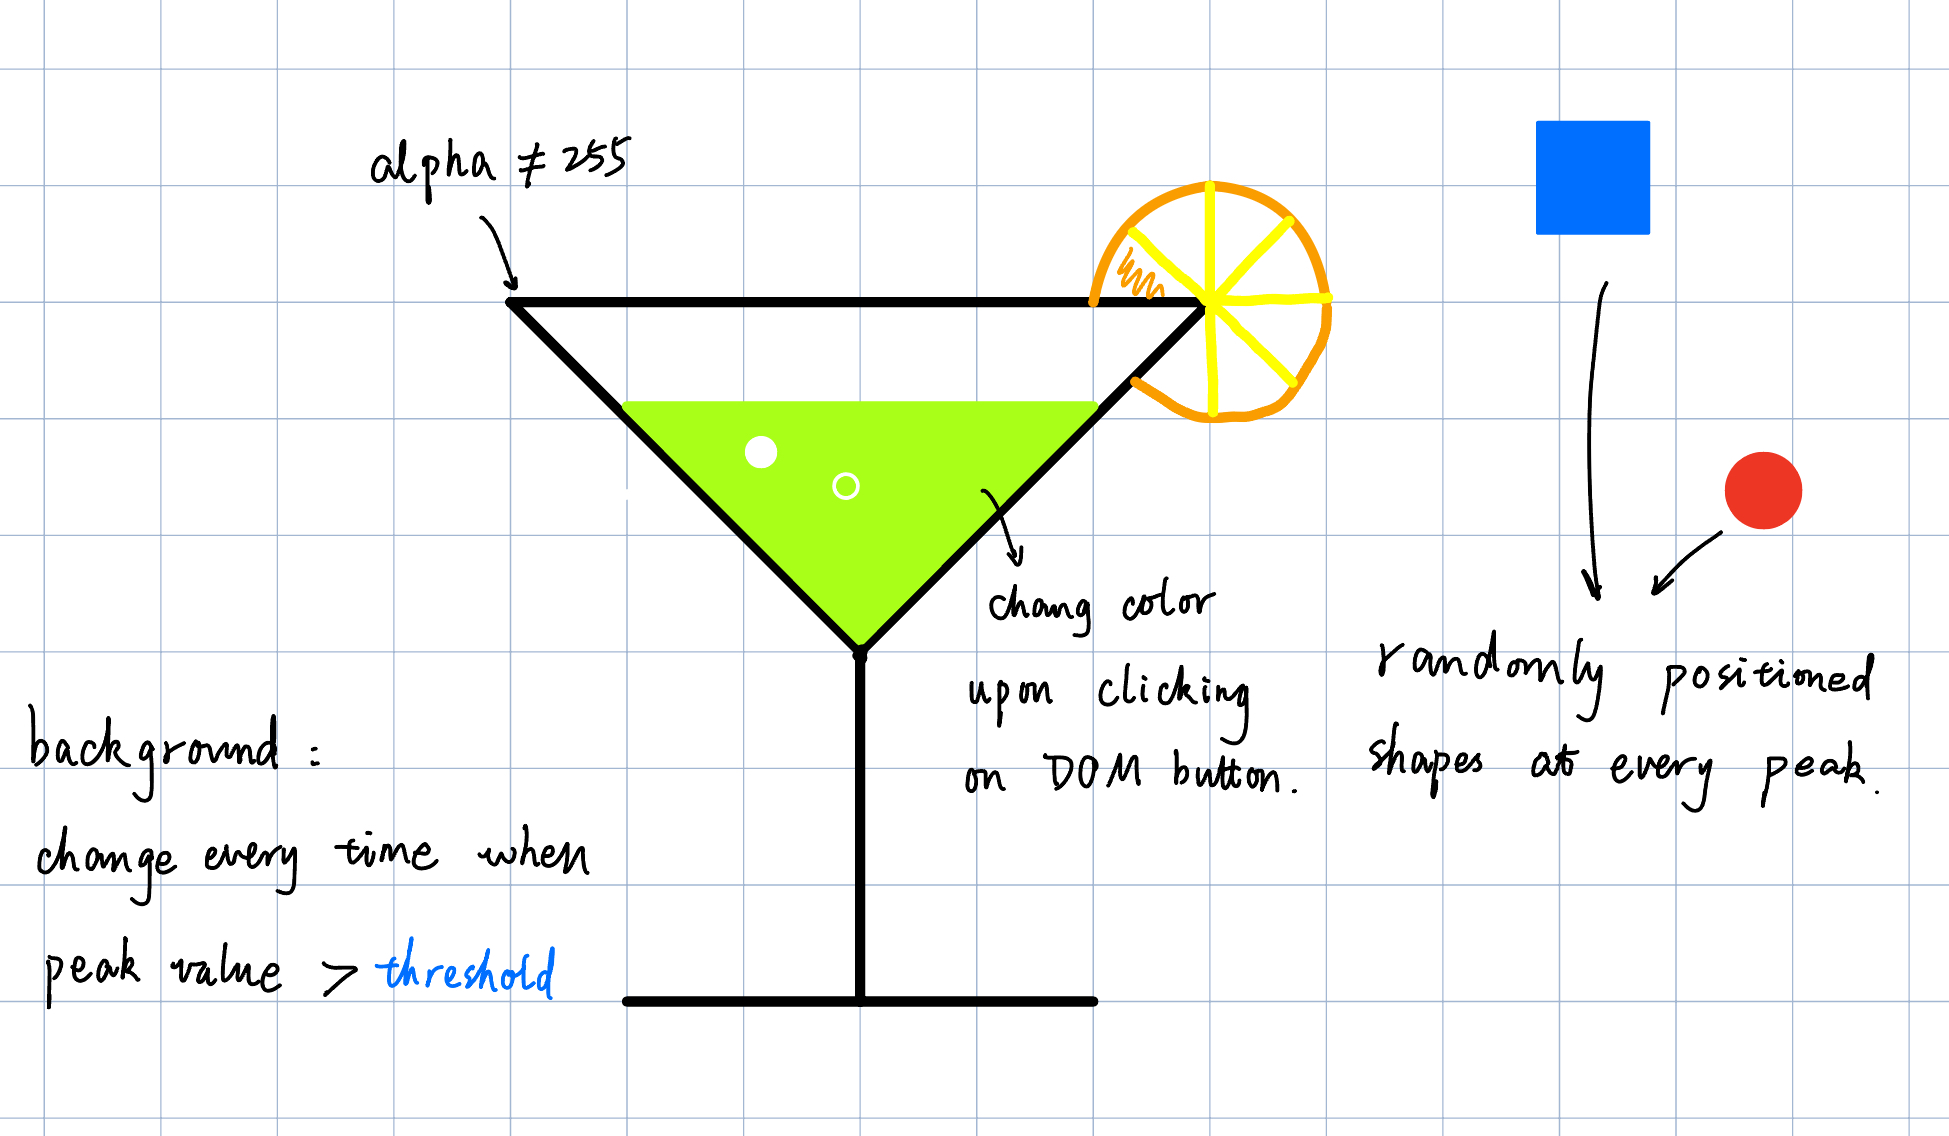 alpha ≠ 255
chang color
upon clicking
on DOM button.
randomly positioned
shapes at every peak.
background :
change every time when
peak value > threshold